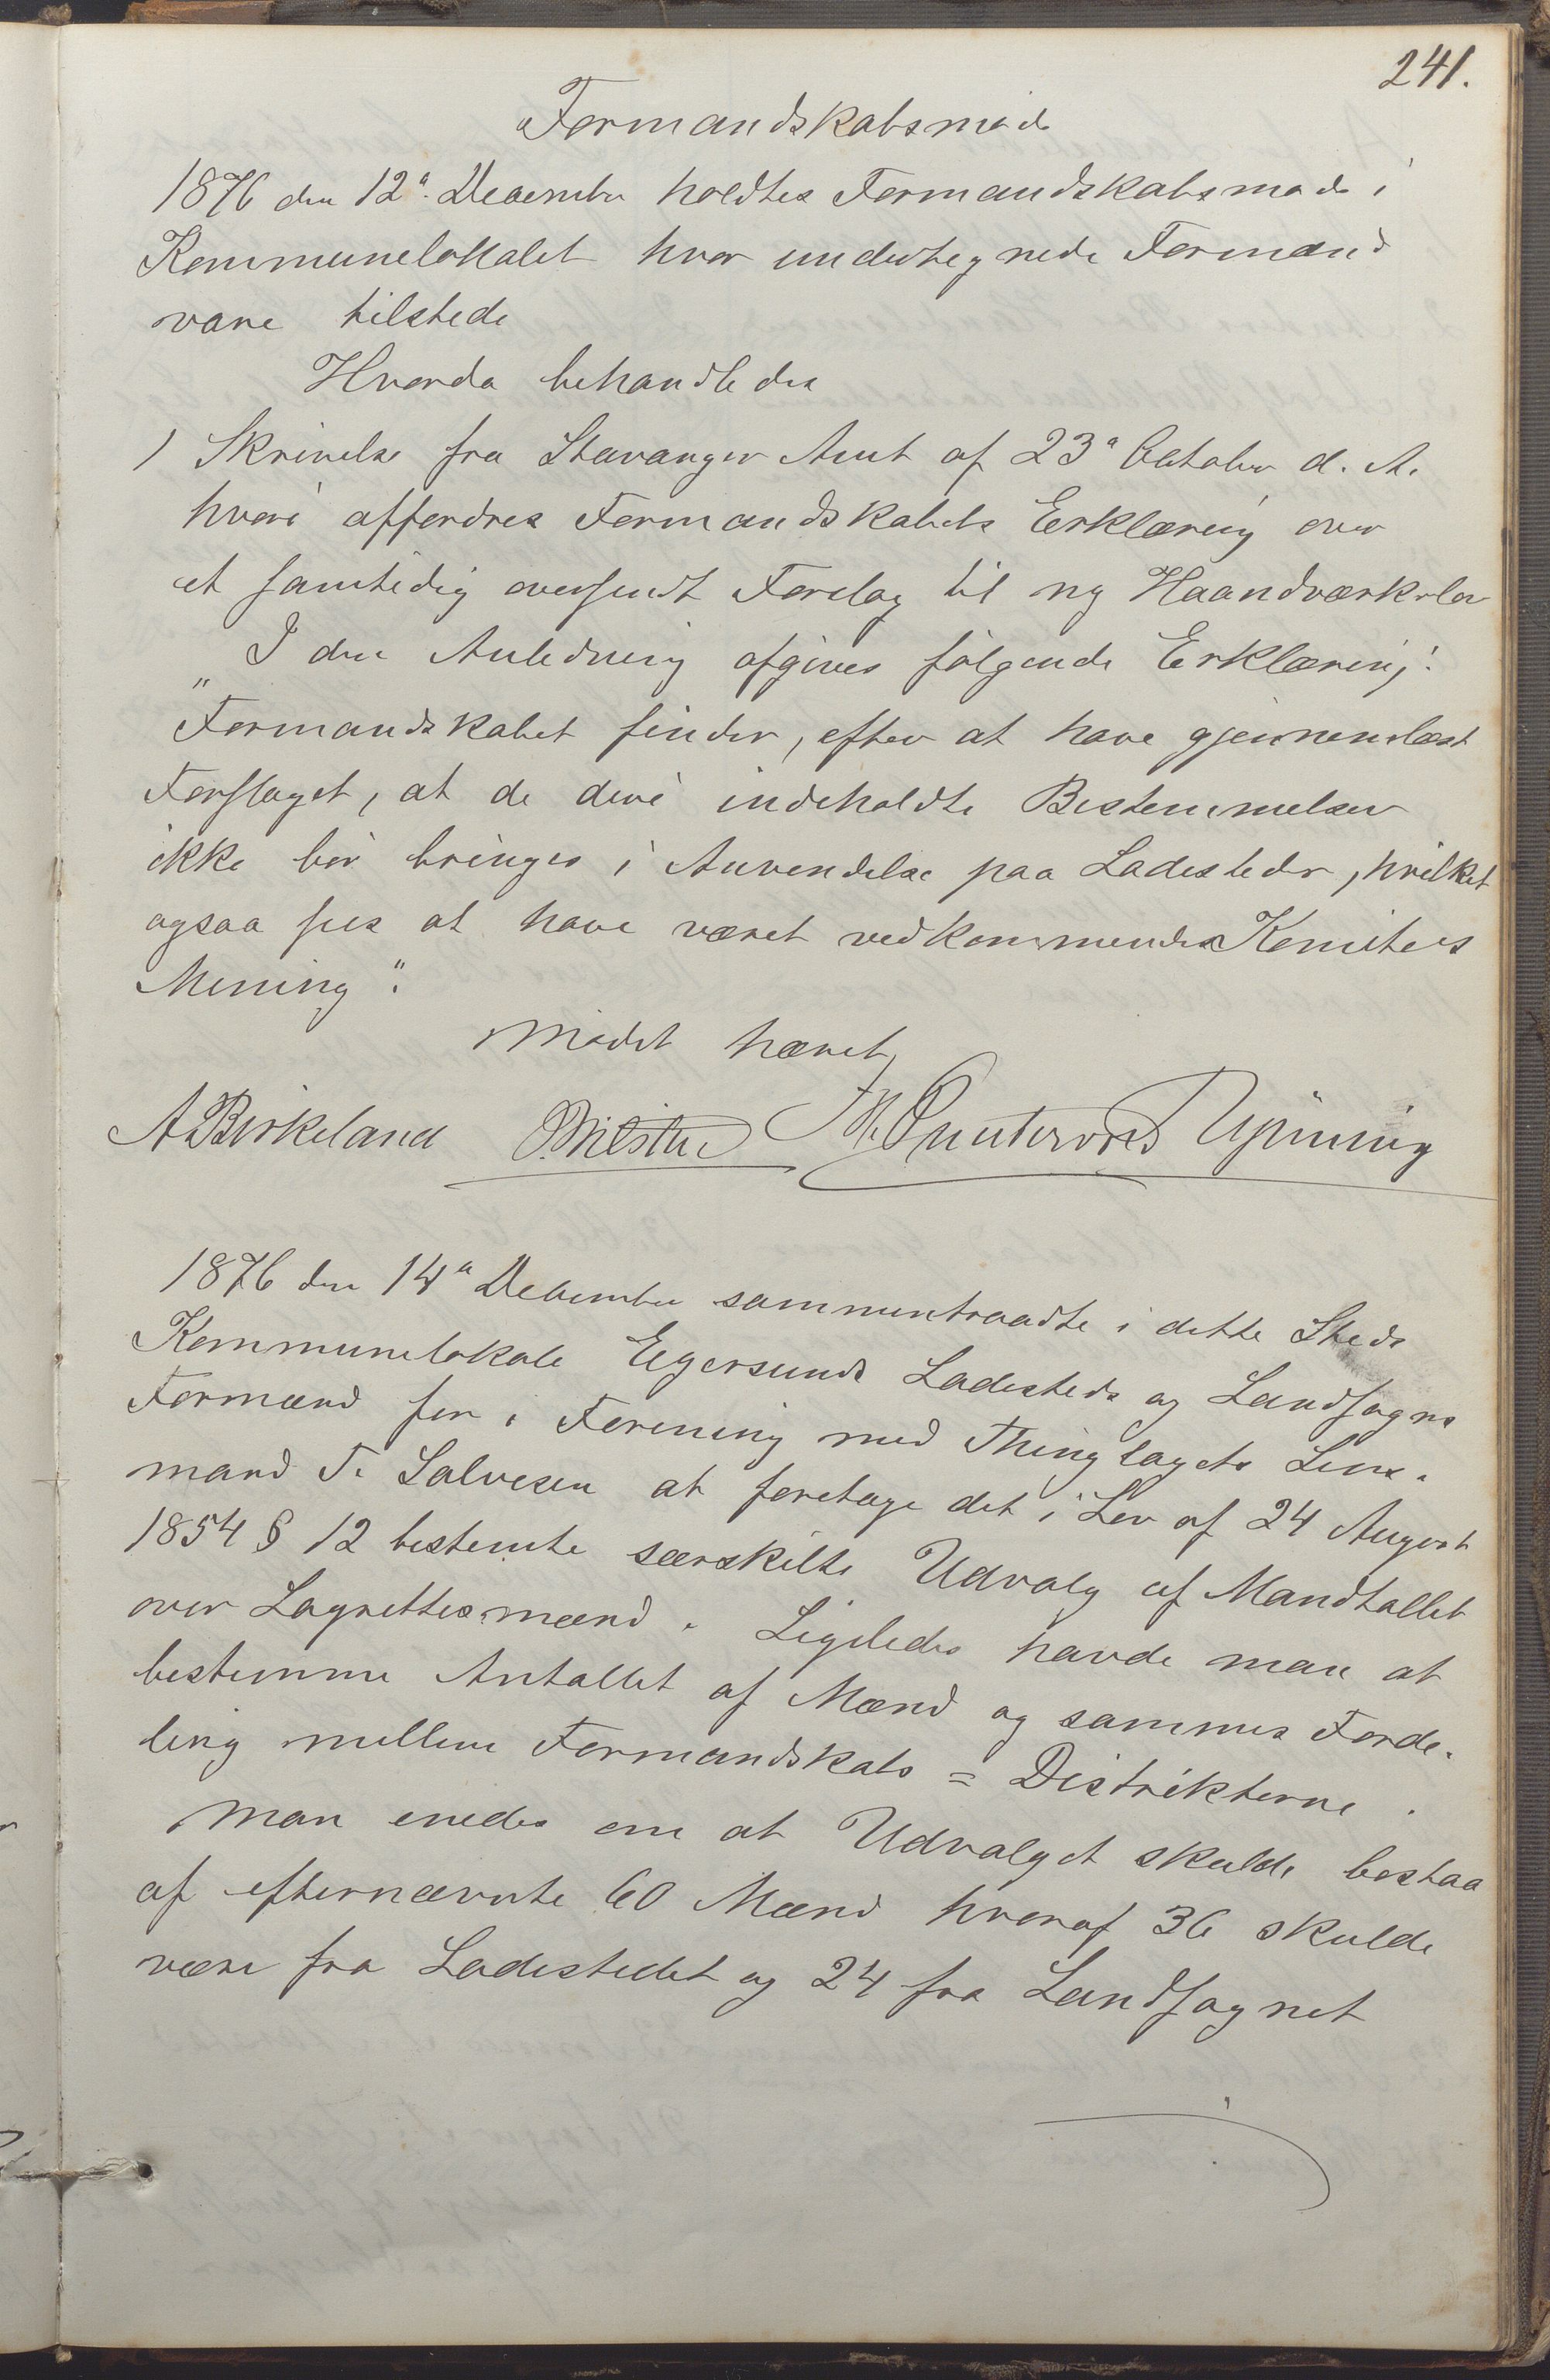 241.
Formandskabsmøde
1876 den 12' December holdtes Formandskabsmøde i
Kommunelokalet hvor undertegnede Formænd
vare tilstede
Hvorda behandledes
1 Skrivelse fra Stavanger Amt af 23' October d. A.
hvori affordres Formandskabets Erklæring over
et samtidig oversendt Forslag til ny Haandværkslov
I den Anledning afgives følgende Erklæring:
"Formandskabet finder, efter at have gjennemlæst
Forslaget, at de deri indeholdte Bestemmelser
ikke bør bringes i Anvendelse paa Ladesteder, hvilket
ogsaa sees at have været vedkommende Komitees
Mening".
Mødet hævet
A Birkeland Puntervold
1876 den 14' December sammentraadte i dette Steds
Kommunelokale Egersunds Ladesteds og Landsogns
Formænd for i Forening med Thinglagets Lens-
mand T. Salvesen at foretage det i Lov af 24 August
1854 § 12 bestemte særskilte Udvalg af Mandtallet
over Lagrettesmænd. Ligeledes havde man at
bestemme Antallet af Mænd og sammes Forde-
ling mellem Formandskabs=Distrikterne.
Man enedes om at Udvalget skulde bestaa
af efternævnte 60 Mænd hvoraf 36 skulde
være fra Ladestedet og 24 fra Landsognet